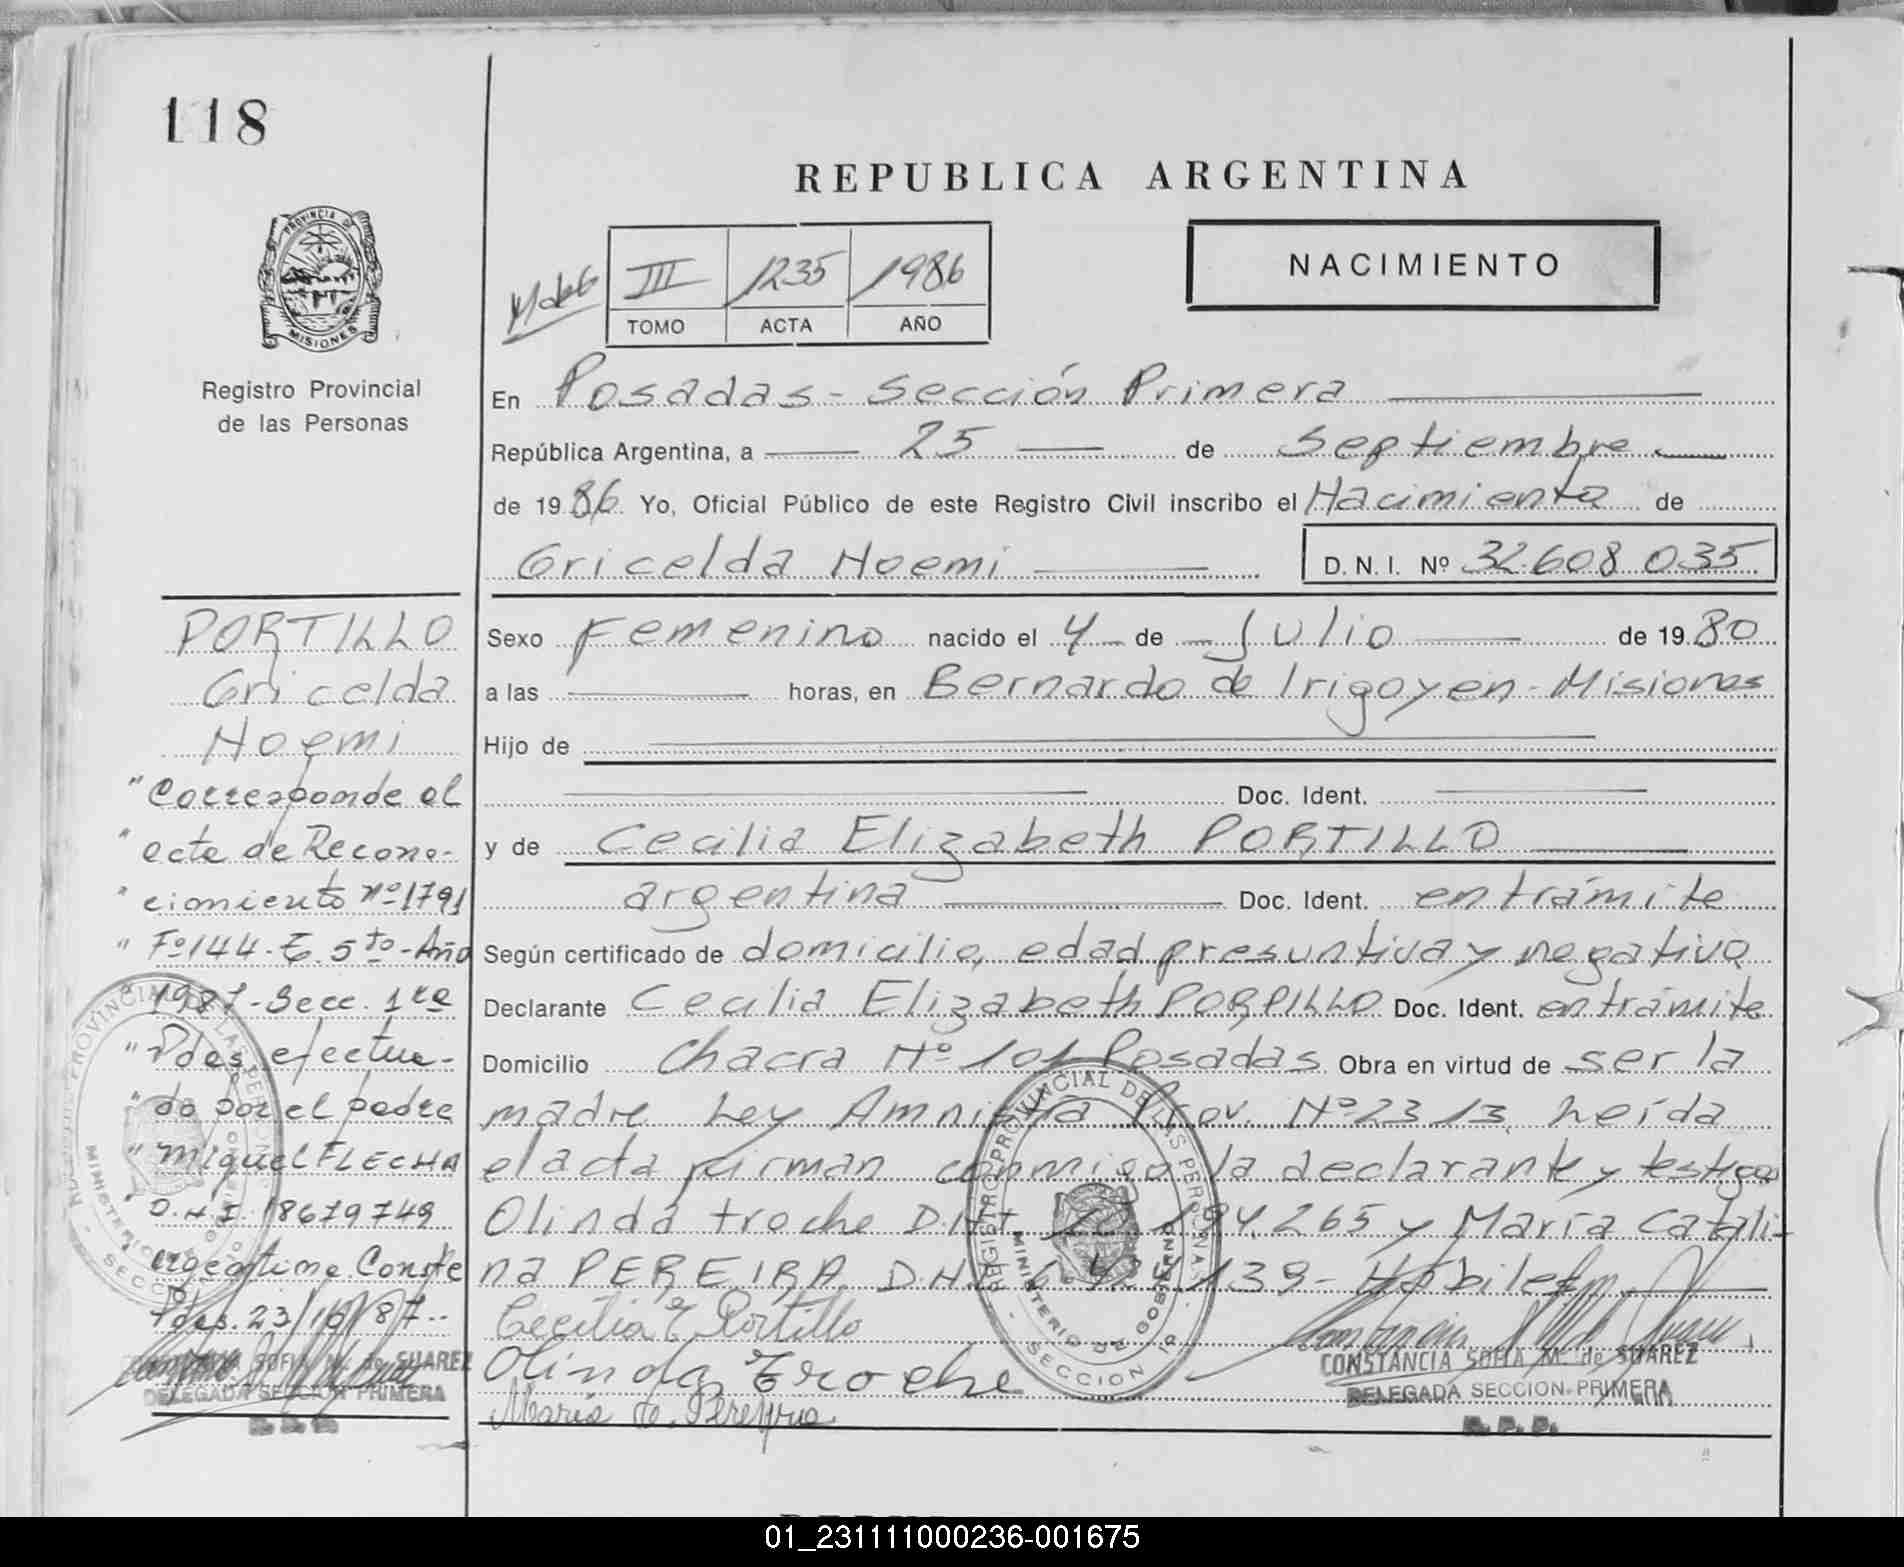 118
REPUBLICA ARGENTINA
PROVINCIA DE
MISIONES
III 1235 1986
TOMO ACTA AÑO
NACIMIENTO
Registro Provincial
de las Personas
En Posadas - Sección Primera
República Argentina, a 25 de Septiembre
de 1986. Yo, Oficial Público de este Registro Civil inscribo el Nacimiento de
Gricelda Noemi D.N.I. Nº 32.608.035
PORTILLO
Gricelda
Noemi
"Corresponde al
"acta de Recono-
"cimiento Nº 1791
"Fº 144-T. 5to-Año
"1987-Secc. 1ra
"Pdas, efectua-
"do por el padre
"Miguel FLECHA
"D.N.I. 18679749
"argentino. Conste
Pdas. 23/10/87..
SOFIA M. de SUAREZ
DELEGADA SECCION PRIMERA
R. P. P.
Sexo Femenino nacido el 4 de Julio de 1980
a las horas, en Bernardo de Irigoyen - Misiones
Hijo de
Doc. Ident.
y de Cecilia Elizabeth PORTILLO
argentina Doc. Ident. en trámite
Según certificado de domicilio, edad presuntiva y negativo
Declarante Cecilia Elizabeth PORTILLO Doc. Ident. en trámite
Domicilio Chacra Nº 101 Posadas Obra en virtud de ser la
madre Ley Amnistía Prov. Nº 2313. Leída
el acta firman conmigo la declarante y testigos
Olinda troche D.N.I. 194.265 y María Catali-
na PEREIRA D.N.I. 139-Hábiles
Cecilia E Portillo
Olinda Troche
María de Pereyra
CONSTANCIA SOFIA M. de SUAREZ
DELEGADA SECCION PRIMERA
R. P. P.
REGISTRO PROVINCIAL DE LAS PERSONAS
MINISTERIO DE GOBIERNO
SECCION
01_231111000236-001675